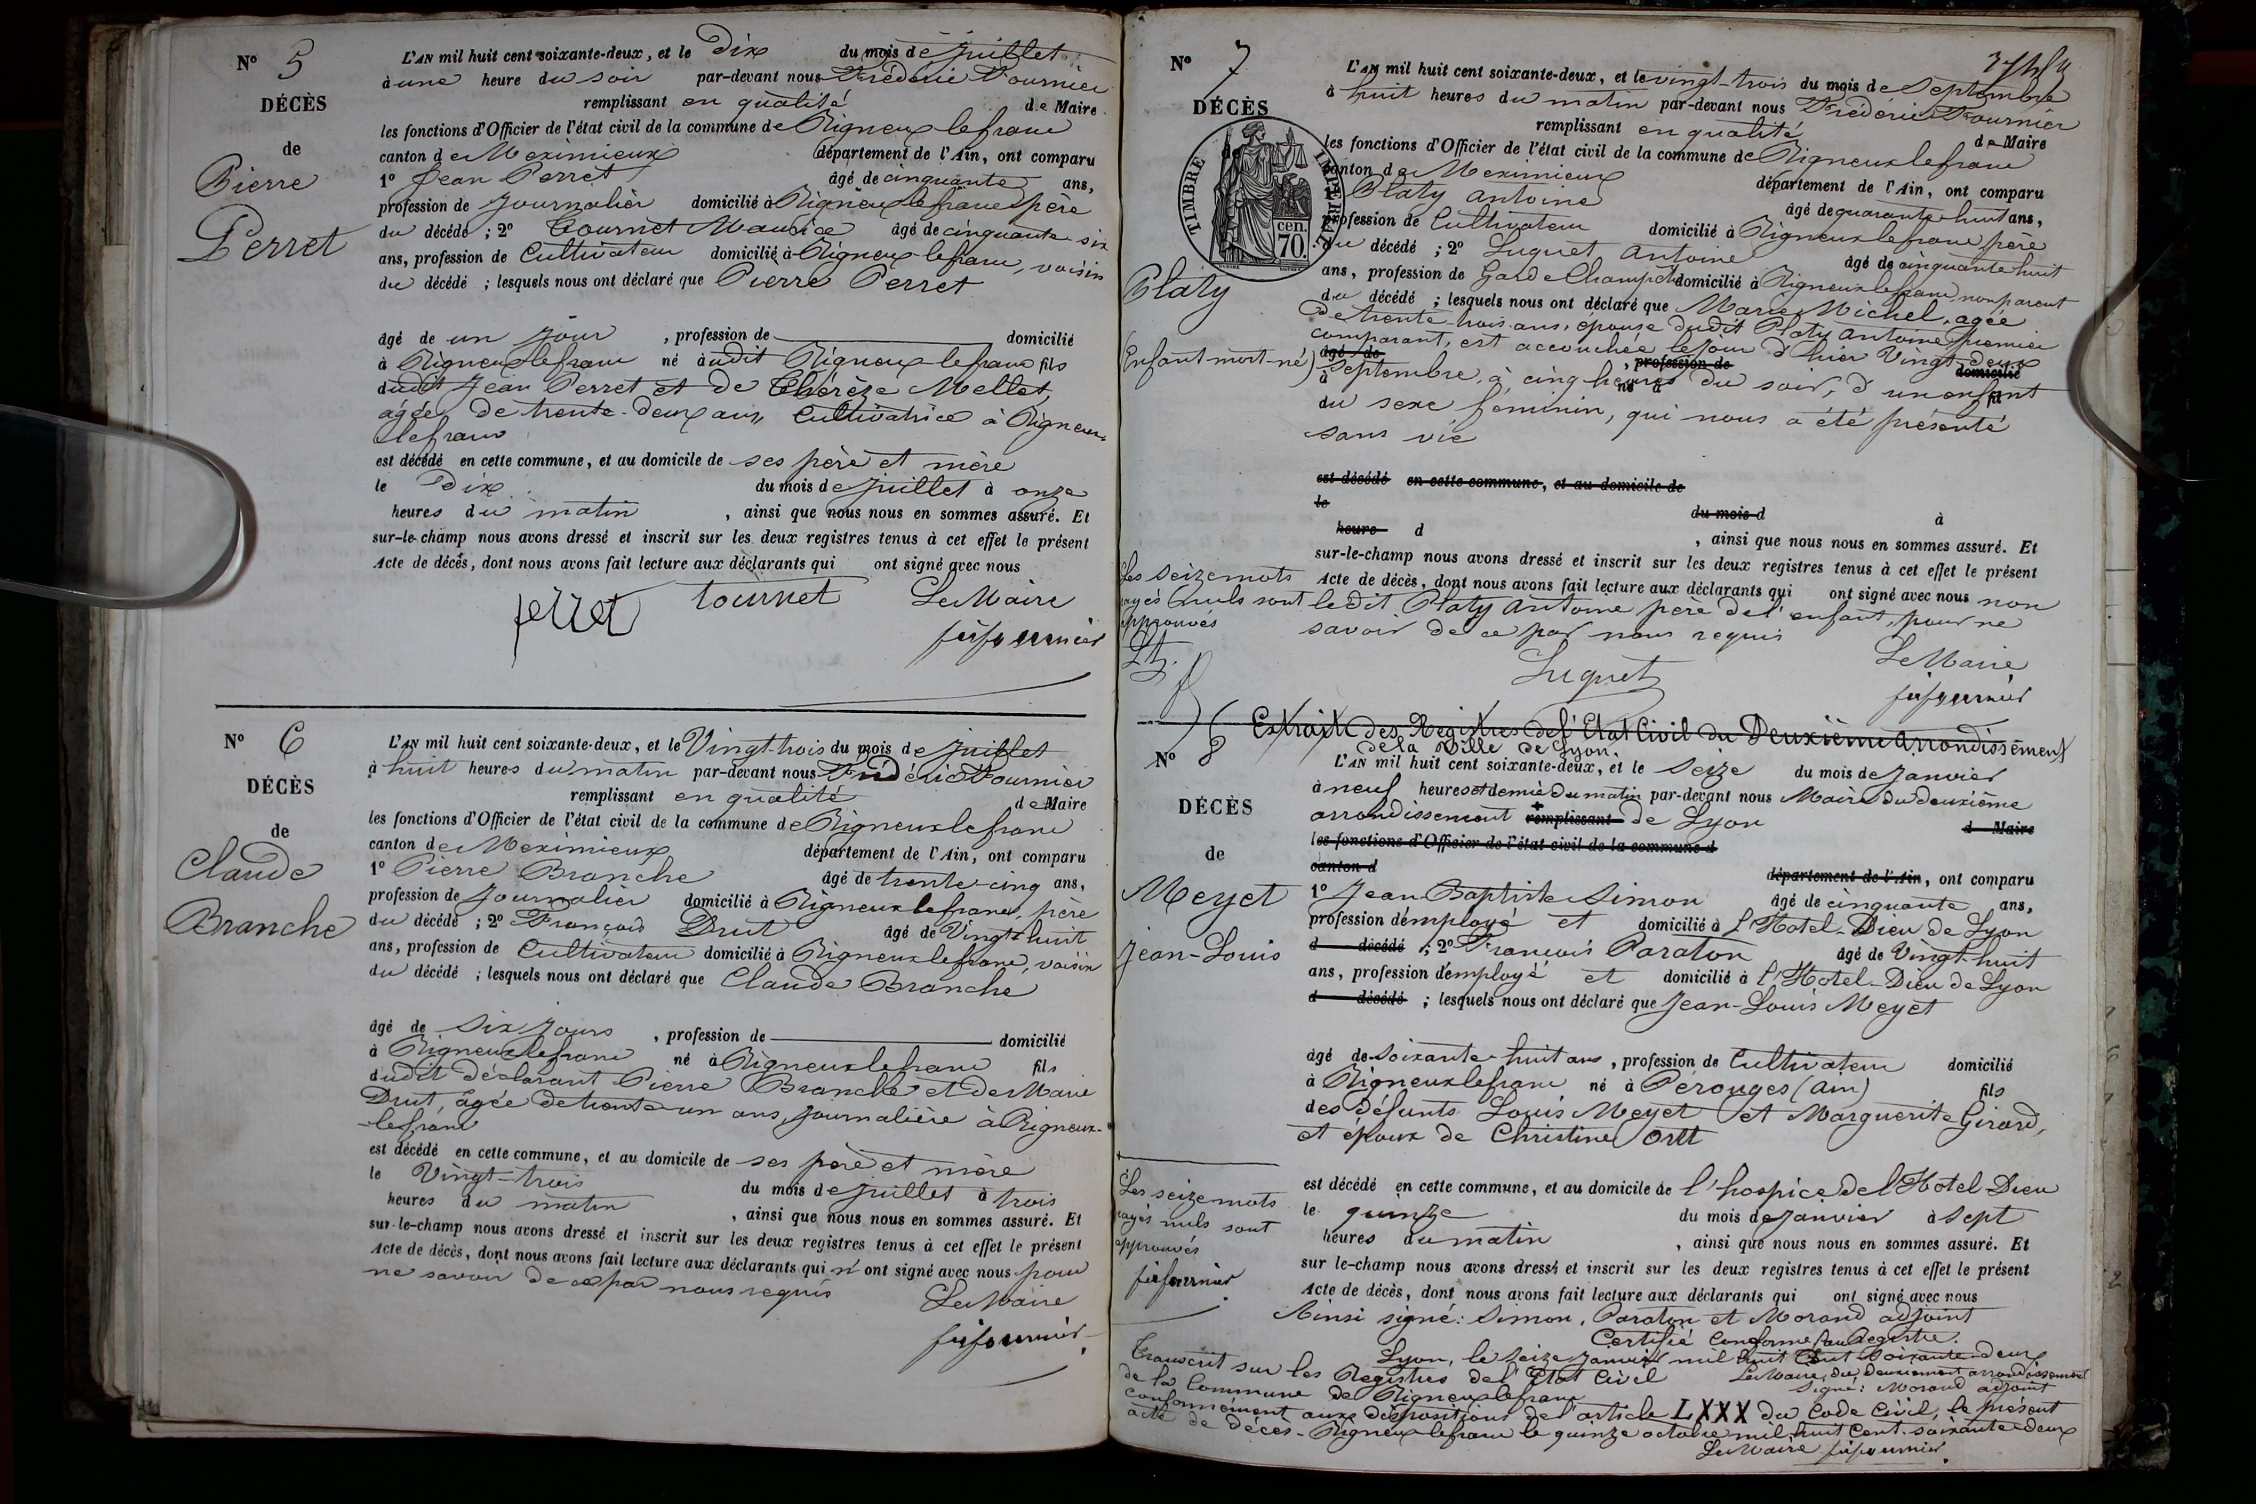 N° 5
DÉCÈS
de
Pierre
Perret
L'AN mil huit cent soixante-deux, et le Dix du mois de Juillet
à une heure du soir par-devant nous Frédéric Fournier
remplissant en qualité de Maire
les fonctions d'Officier de l'état civil de la commune de Rigneux lefranc
canton de Meximieux département de l'Ain, ont comparu
1° Jean Perret âgé de cinquante ans,
profession de Journalier domicilié à Rigneux lefranc père
du décédé ; 2° Tournet Maurice âgé de cinquante six
ans, profession de Cultivateur domicilié à Rigneux lefranc, voisin
du décédé ; lesquels nous ont déclaré que Pierre Perret
âgé de un jour , profession de domicilié
à Rigneux lefranc né àudit Rigneux lefranc fils
dudit Jean Perret et de Thérèze Mellet,
agée de trente-deux ans, Cultivatrice à Rigneux-
lefranc
est décédé en cette commune, et au domicile de ses père et mère
le Dix du mois de Juillet à onze
heures du matin , ainsi que nous nous en sommes assuré. Et
sur-le-champ nous avons dressé et inscrit sur les deux registres tenus à cet effet le présent
Acte de décès, dont nous avons fait lecture aux déclarants qui ont signé avec nous
perret tournet Le Maire
fs fournier
N° 6
DÉCÈS
de
Claude
Branche
L'AN mil huit cent soixante-deux, et le Vingt-trois du mois de Juillet
à huit heures du matin par-devant nous Frédéric Fournier
remplissant en qualité de Maire
les fonctions d'Officier de l'état civil de la commune de Rigneux lefranc
canton de Meximieux département de l'Ain, ont comparu
1° Pierre Branche âgé de trente-cinq ans,
profession de Journalier domicilié à Rigneux lefranc, père
du décédé ; 2° François Drut âgé de Vingt-huit
ans, profession de Cultivateur domicilié à Rigneux lefranc, voisin
du décédé ; lesquels nous ont déclaré que Claude Branche
âgé de Six Jours , profession de domicilié
à Rigneux lefranc né à Rigneux lefranc fils
dudit déclarant Pierre Branche et de Marie
Drut, âgée de trente-un ans, journalière à Rigneux-
-lefranc
est décédé en cette commune, et au domicile de ses père et mère
le Vingt-trois du mois de Juillet à trois
heures du matin , ainsi que nous nous en sommes assuré. Et
sur-le-champ nous avons dressé et inscrit sur les deux registres tenus à cet effet le présent
Acte de décès, dont nous avons fait lecture aux déclarants qui n'ont signé avec nous pour
ne savoir de ce par nous requis
Le Maire
fs fournier
N° 7
DÉCÈS
TIMBRE IMPÉRIAL
cen.
70.
Platy
(Enfant mort-né)
L'AN mil huit cent soixante-deux, et le vingt-trois du mois de Septembre
à huit heures du matin par-devant nous Frédéric Fournier
remplissant en qualité de Maire
les fonctions d'Officier de l'état civil de la commune de Rigneux lefranc
canton de Meximieux département de l'Ain, ont comparu
Platy Antoine âgé de quarante-huit ans,
profession de Cultivateur domicilié à Rigneux lefranc père
du décédé ; 2° Luquet Antoine âgé de cinquante huit
ans, profession de Garde Champêt domicilié à Rigneux lefranc, non parent
du décédé ; lesquels nous ont déclaré que Marie Michel, agée
de trente-trois ans, épouse dudit Platy Antoine premier
comparant, est accouchée le jour d'hier Vingt-deux
âgé de , profession de domicilié
à Septembre, à cinq heures du soir, d'un enfant
né à fil
du sexe féminin, qui nous a été présenté
sans vie
est décédé en cette commune, et au domicile de
le du mois d à
heure d , ainsi que nous nous en sommes assuré. Et
sur-le-champ nous avons dressé et inscrit sur les deux registres tenus à cet effet le présent
Acte de décès, dont nous avons fait lecture aux déclarants qui ont signé avec nous non
ledit Platy Antoine père de l'enfant, pour ne
savoir de ce par nous requis
Les seize mots
rayés nuls sont
approuvés
Lt.
Luquet Le Maire
fs fournier
Extrait des Registres de l'Etat Civil du Deuxième arrondissement
de la Ville de Lyon.
N° 8
DÉCÈS
de
Meyet
Jean-Louis
L'AN mil huit cent soixante-deux, et le Seize du mois de Janvier
à neuf heures et demie du matin par-devant nous Maire du deuxième
arrondissement remplissant de Lyon d Maire
les fonctions d'Officier de l'état civil de la commune d
canton d département de l'Ain, ont comparu
1° Jean Baptiste Simon âgé de cinquante ans,
profession d'employé et domicilié à l'Hotel-Dieu de Lyon
d décédé ; 2° François Paraton âgé de Vingt-huit
ans, profession d'employé et domicilié à l'Hotel-Dieu de Lyon
d décédé ; lesquels nous ont déclaré que Jean-Louis Meyet
âgé de soixante-huit ans , profession de Cultivateur domicilié
à Rigneux lefranc né à Perouges (Ain) fils
des défunts Louis Meyet et Marguerite Girard,
et époux de Christine Ortt
est décédé en cette commune, et au domicile de l'hospice de l'Hotel-Dieu
le quinze du mois de Janvier à Sept
heures du matin , ainsi que nous nous en sommes assuré. Et
sur le-champ nous avons dressé et inscrit sur les deux registres tenus à cet effet le présent
Acte de décès, dont nous avons fait lecture aux déclarants qui ont signé avec nous
Les seize mots
rayés nuls sont
approuvés
fs fournier
Ainsi signé: Simon, Paraton et Morand adjoint
Certifié Conforme au Registre.
Lyon, le Seize Janvier mil huit Cent Soixante-deux
Le Maire du deuxième arrondissement
Signé: Morand adjoint
Transcrit sur les Registres de l'Etat Civil
de la Commune de Rigneux lefranc
conformément aux dispositions de l'article LXXX du Code Civil, le présent
acte de décès - Rigneux lefranc le quinze octobre mil huit cent soixante-deux
Le Maire fs fournier